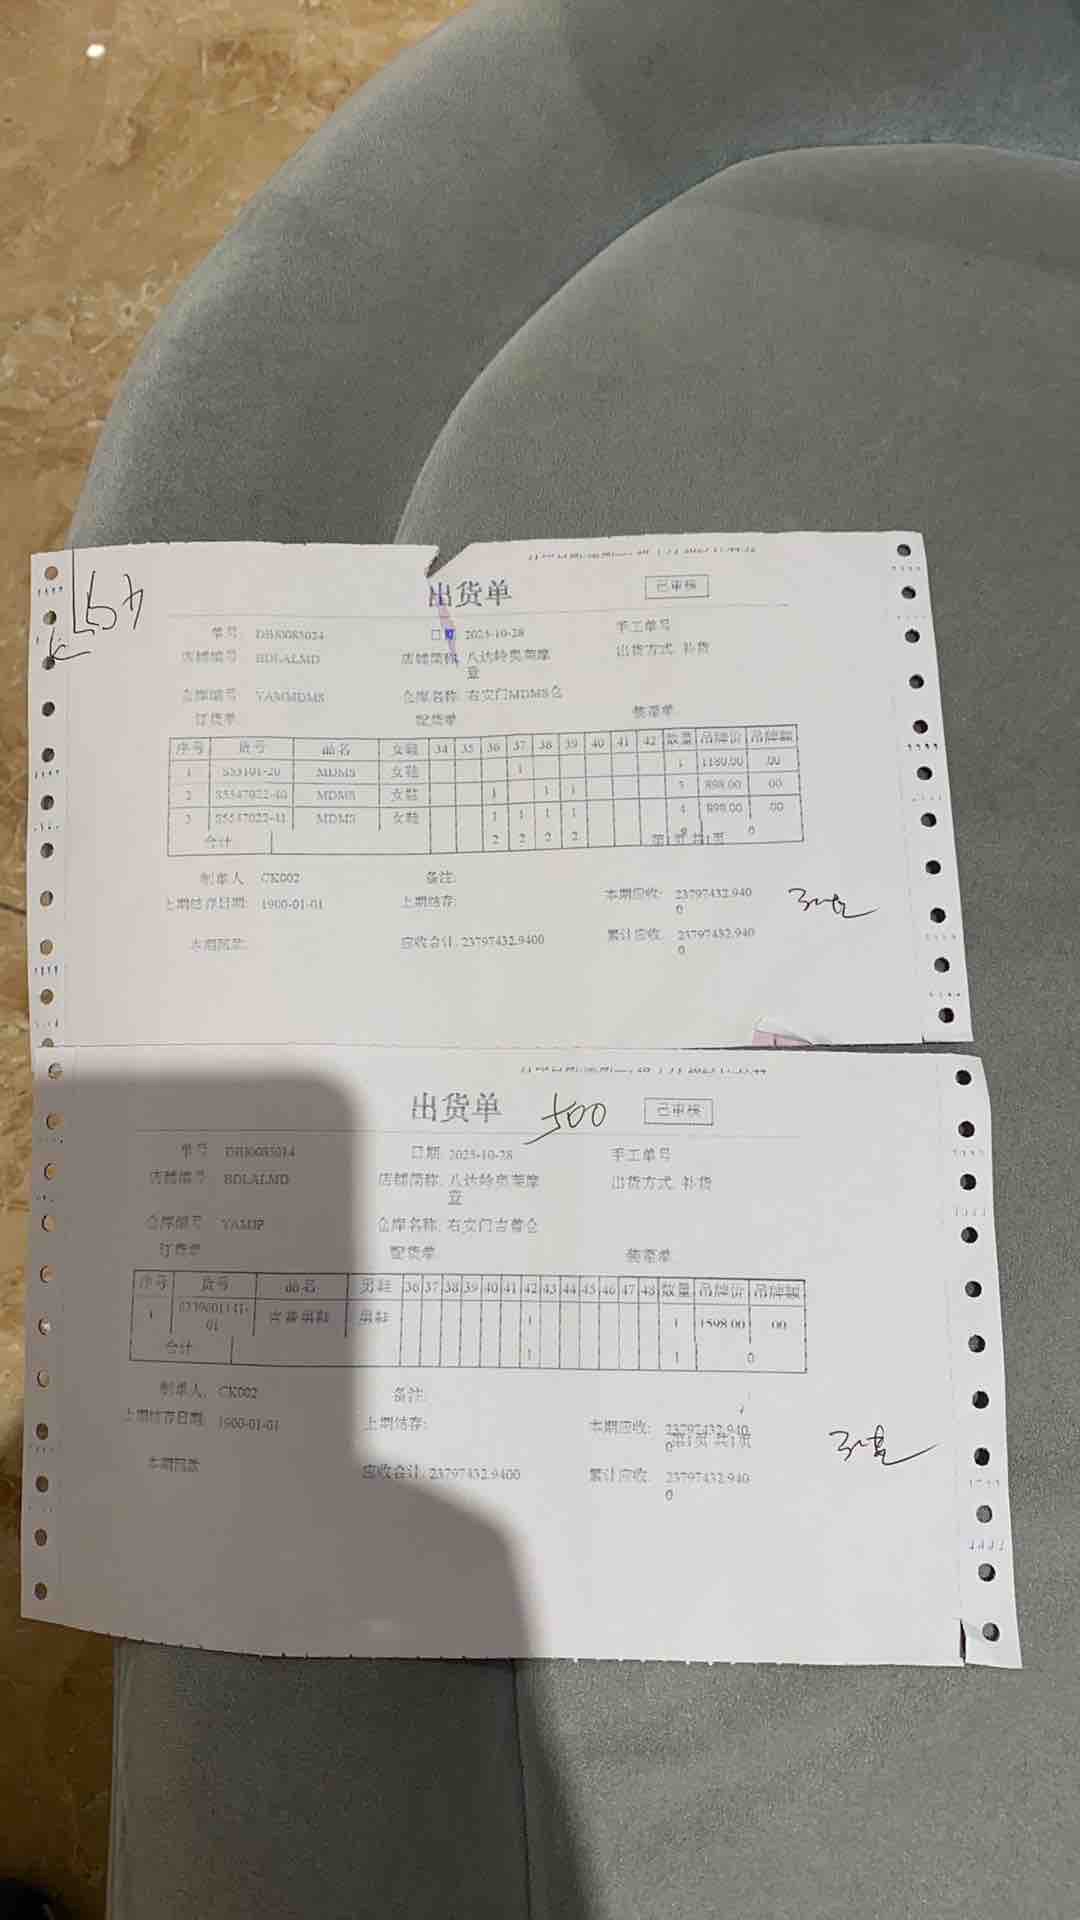 出货单 已审核
单号: 日期: 2025-10-28 手工单号
店铺编号 BDLALMD 店铺简称: 八达岭奥莱摩登 出货方式: 补货
仓库编号 YAMMDMS 仓库名称: 右安门MDMS仓
订货单 配货单 装箱单
序号 货号 品名 女鞋 34 35 36 37 38 39 40 41 42 数量 吊牌价 吊牌额
1 MDMS 女鞋 1 1 1180.00 .00
2 MDMS 女鞋 1 1 1 3 898.00 .00
3 MDMS 女鞋 1 1 1 1 4 898.00 .00
合计 2 2 2 2 0
第1页 共1页
制单人 CK002 备注:
上期结存日期: 1900-01-01 上期结存: 本期应收: 23797432.9400
本期回款 应收合计: 23797432.9400 累计应收: 23797432.9400
出货单 500 已审核
单号 日期: 2025-10-28 手工单号
店铺编号 BDLALMD 店铺简称: 八达岭奥莱摩登 出货方式: 补货
仓库编号 仓库名称: 右安门吉普仓
订货单 配货单 装箱单
序号 货号 品名 男鞋 36 37 38 39 40 41 42 43 44 45 46 47 48 数量 吊牌价 吊牌额
1 男鞋 1 1 1598.00 .00
合计 1 1 0
制单人: CK002 备注:
上期结存日期: 1900-01-01 上期结存: 本期应收: 23797432.9400
第1页 共1页
本期回款 应收合计: 23797432.9400 累计应收: 23797432.9400